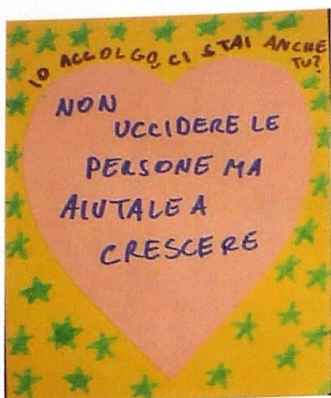 IO ACCOLGO, CI STAI ANCHE
TU?
NON
UCCIDERE LE
PERSONE MA
AIUTALE A
CRESCERE